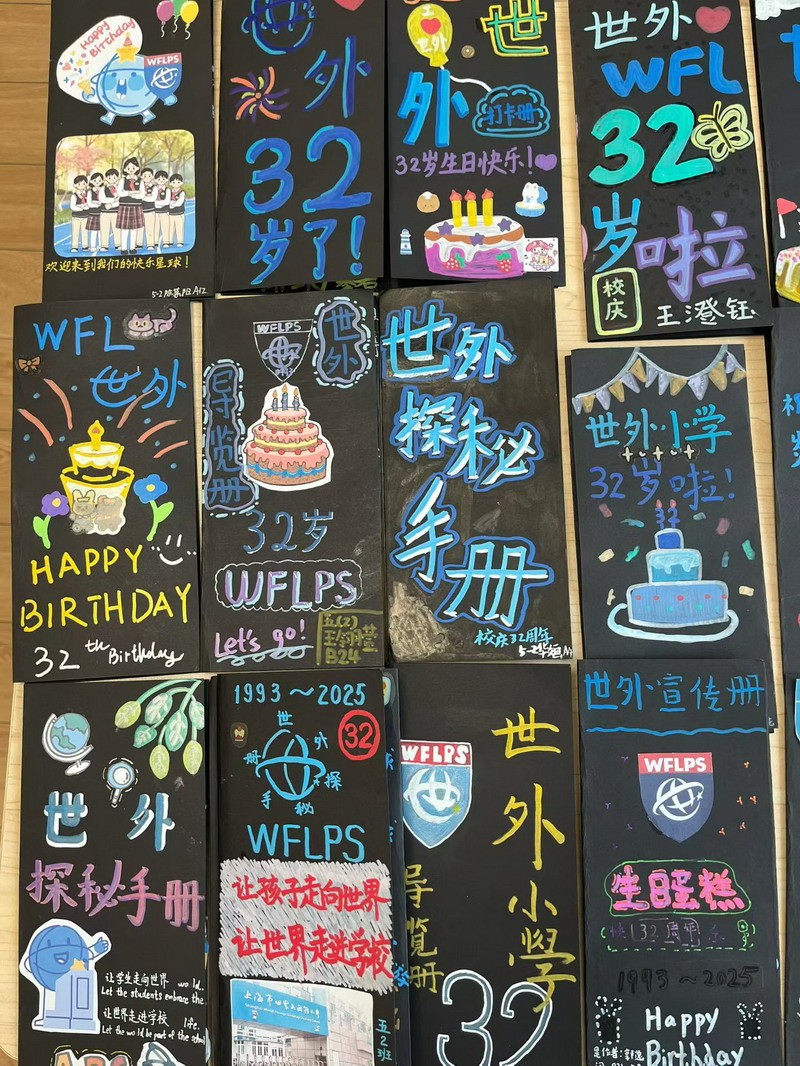 Happy Birthday
WFLPS
欢迎来到我们的快乐星球!
外
32
岁了!
世
外
打卡册
32岁生日快乐!
世外
WFL
32
岁啦
校庆
王澄钰
WFL
世外
HAPPY
BIRTHDAY
32th Birthday
WFLPS
世外
导览册
32岁
WFLPS
Let's go!
五(2)
B24
世外
探秘
手册
校庆32周年
世外小学
32岁啦!
32
世外
探秘手册
让学生走向世界
Let the students embrace the
world.
让世界走进学校
life.
Let the world be part of the school
1993~2025
32
世外探秘手册
WFLPS
让孩子走向世界
让世界走进学校
五2班
WFLPS
世外小学
导览册
32
世外宣传册
WFLPS
生日蛋糕
快32周年乐
1993~2025
Happy
Birthday